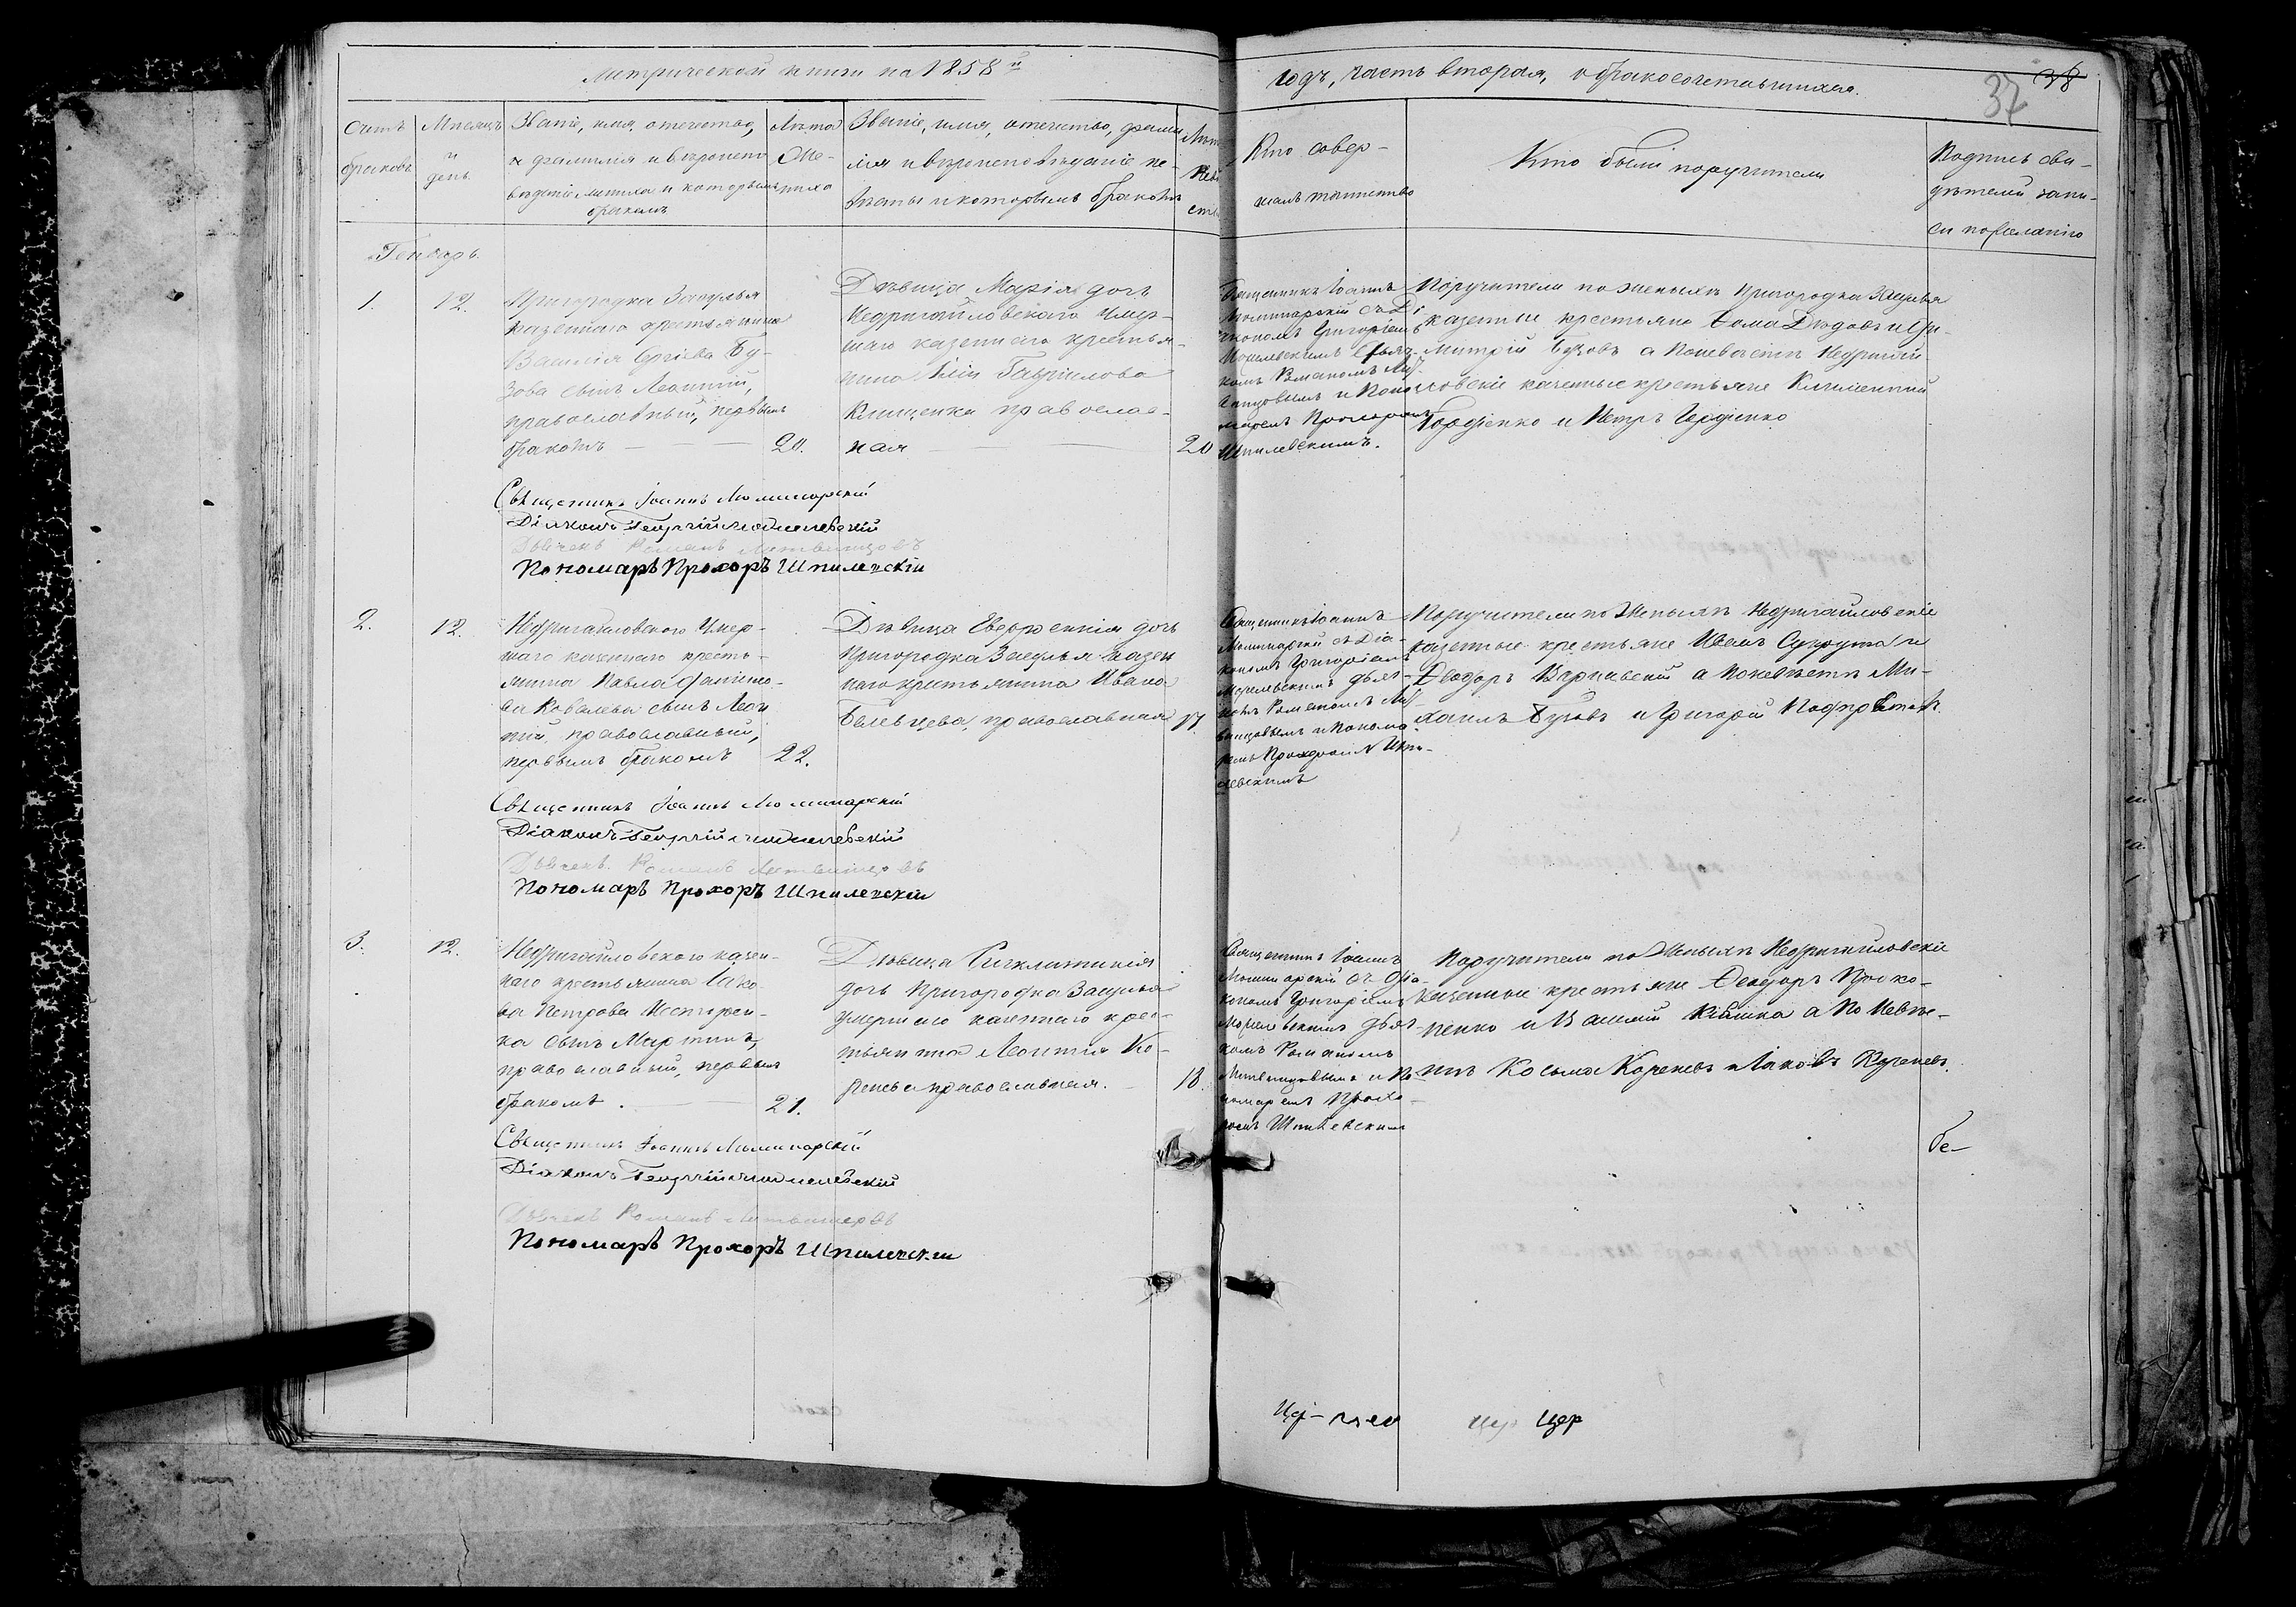 Метрической книги на 1858й
годъ, часть вторая, о бракосочетавшихся.
38
37
Счетъ
браковъ
Мѣсяцъ
и
день.
Званіе, имя, отечество,
фамилія и вѣроиспо-
вѣданіе жениха и которымъ
бракомъ
Лѣта
Же-
ниха
Званіе, имя, отечество, фами
лія и вѣроисповѣданіе не-
вѣсты и которымъ бракомъ
Лѣта
Невѣ
сты
Кто совер-
шалъ таинство
Кто были поручители
Подпись сви-
дѣтелей запи-
си по желанію
Генварь.
1.
12.
Пригородка Засулья
казеннаго крестьянина
Василія Сргіева Бу-
зова сынъ Леонтій,
православный, первымъ
бракомъ
20.
Дѣвица Марія дочь
Недригайловскаго умер-
шаго казеннаго крестья-
нина Иліи Гавріилова
Клищенка православ-
ная
20
Священникъ Іоаннъ
съ Ді
акономъ Григоріемъ
дьяч-
комъ Романомъ Лит
винцовымъ и Поно
маремъ Прохоромъ
Шпилевскимъ.
Поручители по женихѣ Пригородка Засулья
казенные крестьяне Ѳома Дѣдовъ и Ди-
митрій Бузовъ а по невѣстѣ Недригай
ловскіе казенные крестьяне Климентій
Гордіенко и Петръ Гордіенко
Священникъ Іоаннъ
Діаконъ Георгій
Дьячекъ Романъ Литвинцовъ
Пономарь Прохоръ Шпилевскіи
2.
12.
Недригайловскаго умер-
шаго казеннаго кресть-
янина Павла
ва Ковалева сынъ Леон
тій, православный,
первымъ бракомъ
22.
Дѣвица Евфросинія дочь
Пригородка Засулья казен
наго крестьянина Ивана
православная
17.
Священникъ Іоаннъ
съ Діа-
кономъ Григоріемъ
дьяч-
комъ Романомъ Лит-
винцовымъ и Понома
ремъ Прохоромъ Шпи-
левскимъ
Поручители по Женихѣ Недригайловскіе
казенные крестьяне Иванъ Сукрута и
Ѳеодоръ а по невѣстѣ Ми-
хаилъ Бузовъ и Григорій
Священникъ Іоаннъ
Діаконъ Георгій
Дьячекъ Романъ Литвинцовъ
Пономарь Прохоръ Шпилевскіи
3.
12.
Недригайловскаго казен-
наго крестьянина Іако-
ва Петрова Нестерен-
ка сынъ Мартинъ,
православный, первымъ
бракомъ.
21.
Дѣвица Синклитикія
дочь Пригородка Засулья
умершаго казеннаго крес-
тьянина Леонтія Ко-
ренева православная.
18.
Священникъ Іоаннъ
съ Діа-
кономъ Григоріемъ
дьяч-
комъ Романомъ
Литвинцовымъ и По
номаремъ Прохо-
ромъ Шпилевскимъ
Поручители по Женихѣ Недригайловскіе
казенные крестьяне Ѳеодоръ Проко-
пенко и Василій Кишка а по Невѣс-
тѣ Косьма Кореневъ и Іаковъ Кореневъ.
Священникъ Іоаннъ
Діаконъ Георгій
Дьячекъ Романъ Литвинцовъ
Пономарь Прохоръ Шпилевскіи
бе-
Цер